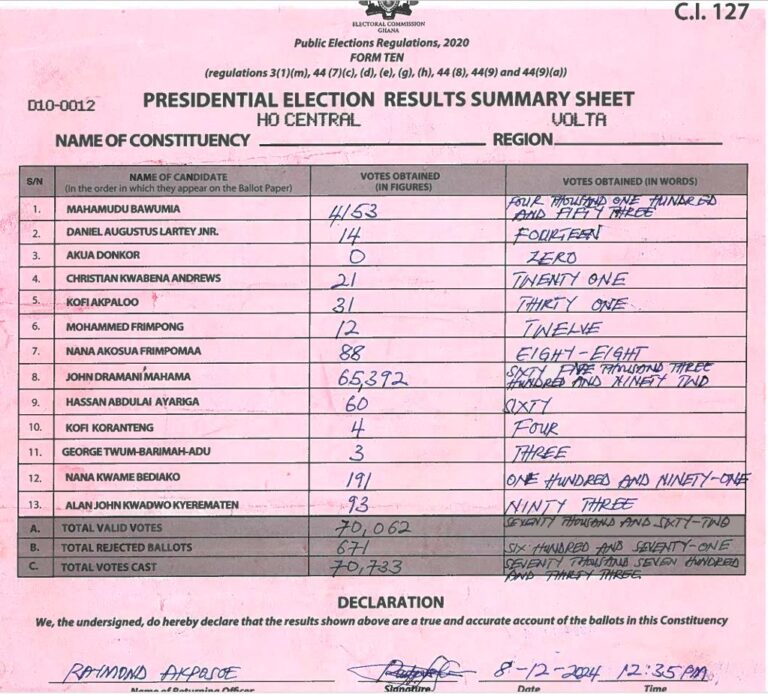 C.I. 127
ELECTORAL COMMISSION
GHANA
Public Elections Regulations, 2020
FORM TEN
(regulations 3(1)(m), 44 (7)(c), (d), (e), (g), (h), 44 (8), 44(9) and 44(9)(a))
D10-0012 PRESIDENTIAL ELECTION RESULTS SUMMARY SHEET
HO CENTRAL VOLTA
NAME OF CONSTITUENCY REGION
S/N NAME OF CANDIDATE (In the order in which they appear on the Ballot Paper) VOTES OBTAINED (IN FIGURES) VOTES OBTAINED (IN WORDS)
1. MAHAMUDU BAWUMIA 4153 FOUR THOUSAND ONE HUNDRED AND FIFTY THREE
2. DANIEL AUGUSTUS LARTEY JNR. 14 FOURTEEN
3. AKUA DONKOR 0 ZERO
4. CHRISTIAN KWABENA ANDREWS 21 TWENTY ONE
5. KOFI AKPALOO 31 THIRTY ONE
6. MOHAMMED FRIMPONG 12 TWELVE
7. NANA AKOSUA FRIMPOMAA 88 EIGHY-EIGHT
8. JOHN DRAMANI MAHAMA 65,392 SIXTY FIVE THOUSAND THREE HUNDRED AND NINETY TWO
9. HASSAN ABDULAI AYARIGA 60 SIXTY
10. KOFI KORANTENG 4 FOUR
11. GEORGE TWUM-BARIMAH-ADU 3 THREE
12. NANA KWAME BEDIAKO 191 ONE HUNDRED AND NINETY-ONE
13. ALAN JOHN KWADWO KYEREMATEN 93 NINTY THREE
A. TOTAL VALID VOTES 70,062 SEVENTY THOUSAND AND SIXTY-TWO
B. TOTAL REJECTED BALLOTS 671 SIX HUNDRED AND SEVENTY-ONE
C. TOTAL VOTES CAST 70,733 SEVENTY THOUSAND SEVEN HUNDRED AND THIRTY THREE
DECLARATION
We, the undersigned, do hereby declare that the results shown above are a true and accurate account of the ballots in this Constituency
RAYMOND AKPOSOE 8-12-2024 12:35PM
Name of Returning Officer Signature Date Time